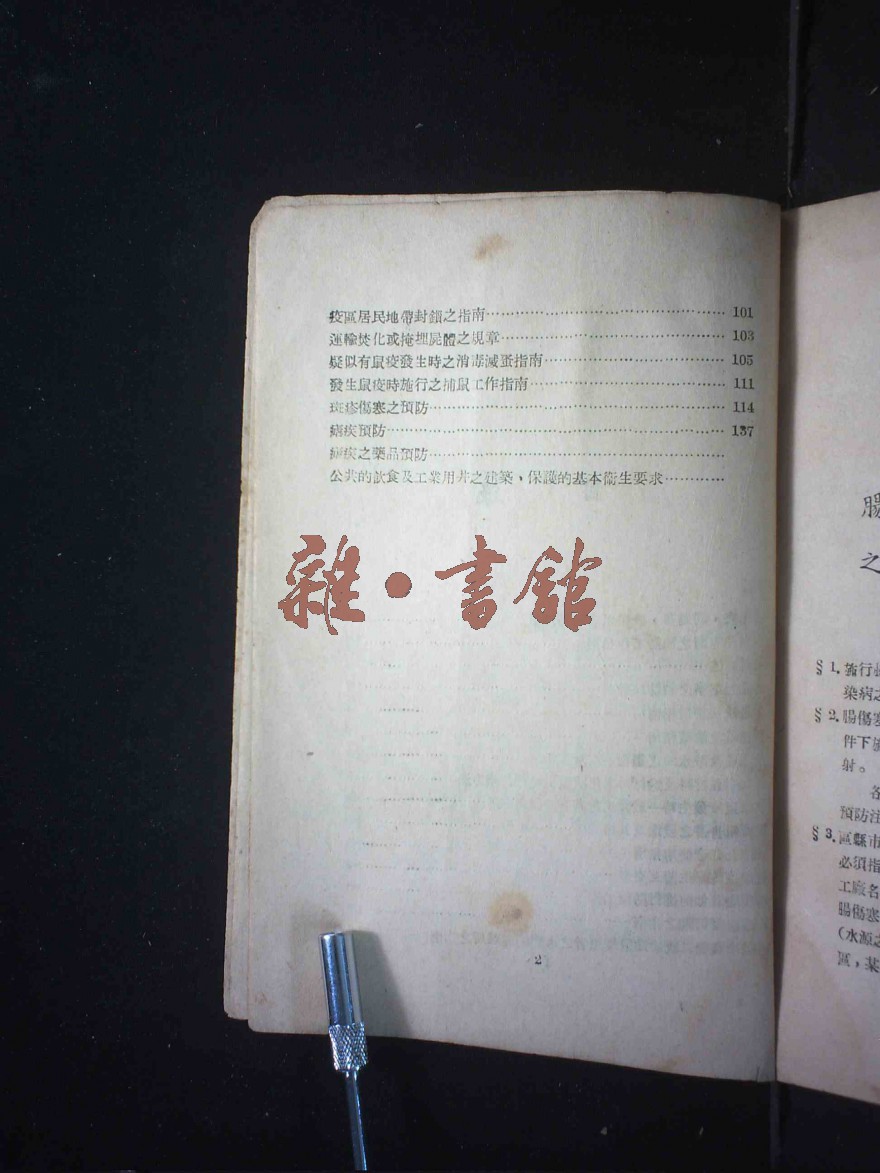 疫區居民地帶封鎖之指南 101
運輸焚化或掩埋屍體之規章 103
疑似有鼠疫發生時之消毒滅蚤指南 105
發生鼠疫時施行之捕鼠工作指南 111
斑疹傷寒之預防 114
瘧疾預防 137
瘧疾之藥品預防
公共的飲食及工業用井之建築、保護的基本衛生要求
雜・書館
2
腸
之
§ 1. 施行
染病之
§ 2. 腸傷寒
件下
射。
各
預防注
§ 3. 區縣市
必須指
工廠名
腸傷寒
(水源之
區,某